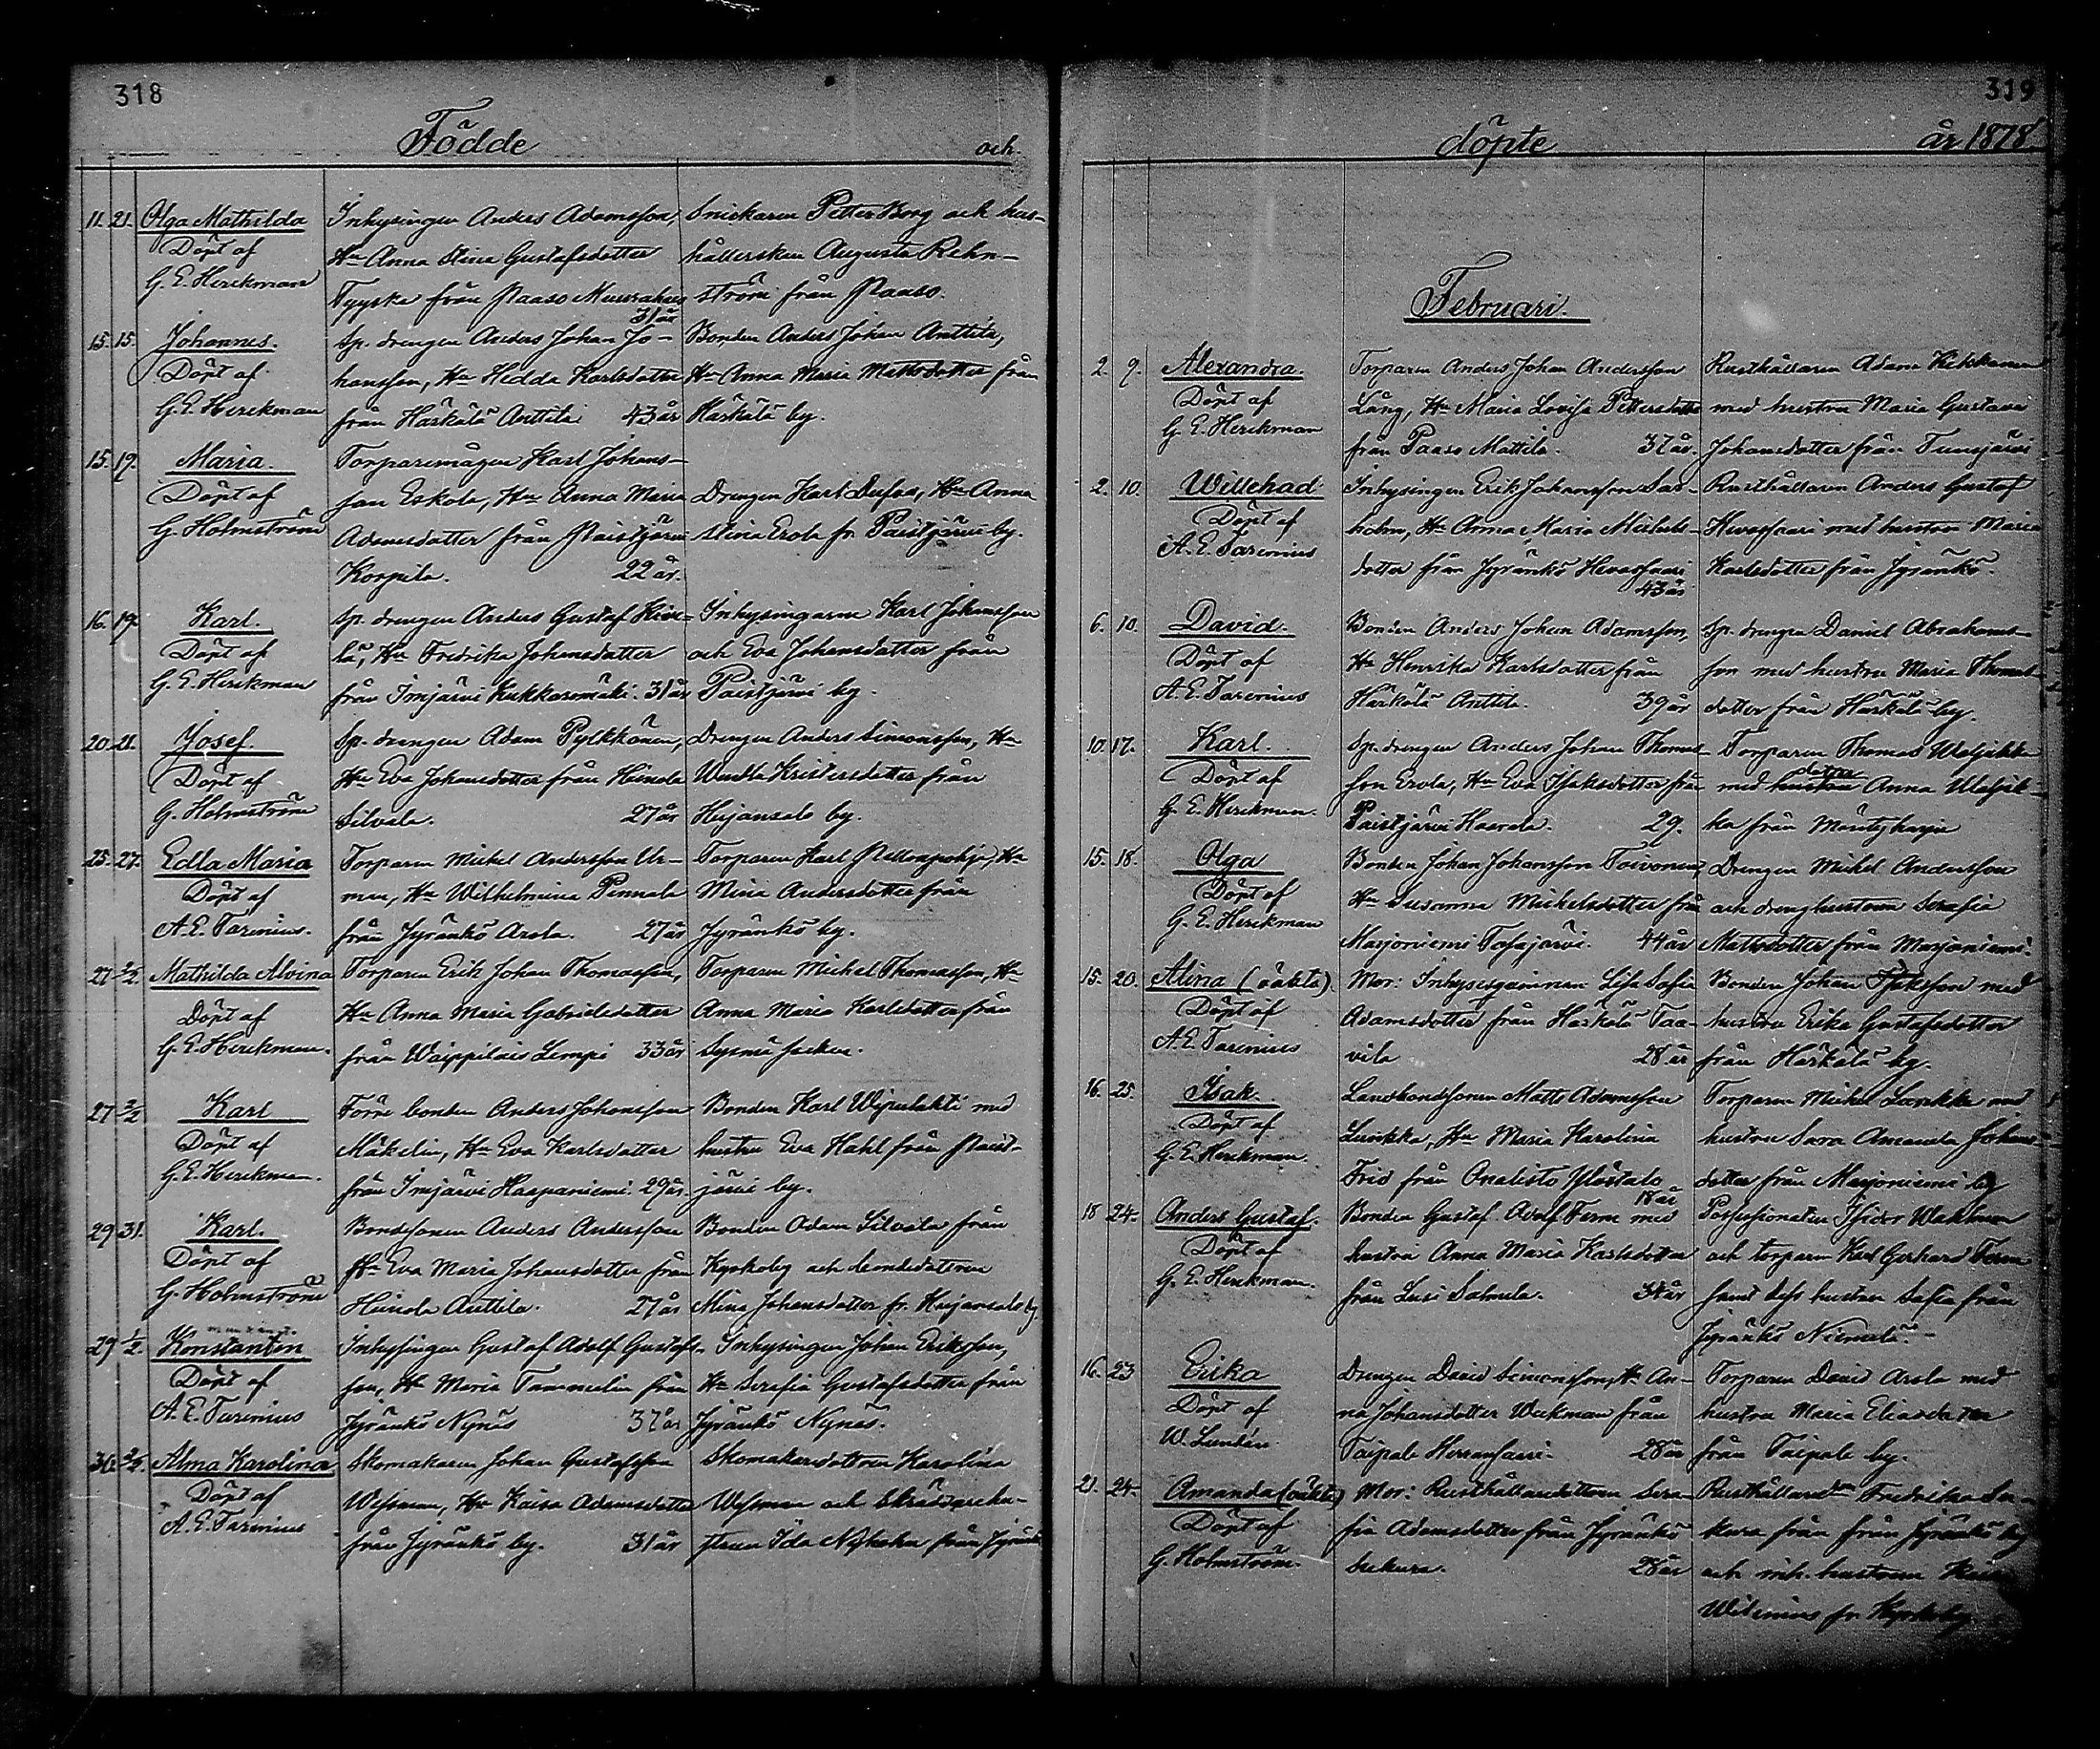 318
Födde och
11. 21. Olga Mathilda Inhysingen Anders Adamsson, Snickaren Petter Borg och hus-
Döpt af Hu Anna Stina Gustafsdotter hållerskan Augusta Rehn-
G. E. Herckman från Paaso ström från Paaso.
31 år
15. 15. Johannes. Sp. drengen Anders Johan Jo- Bonden Anders Johan Anttila,
Döpt af hansson, Hu Hedda Karlsdotter Hu Anna Maria Mattsdotter från
G. E. Herckman från Härkälä Anttila 43 år Härkälä by.
15. 19. Maria. Torparemågen Karl Johans-
Döpt af son Eskola, Hu Anna Maria Drengen Karl Dufva, Hu Anna
G. Holmström Adamsdotter från Paistjärvi Stina Erola fr. Paistjärvi by.
Korpila. 22 år.
16. 19. Karl. Sp. drengen Anders Gustaf Kive- Inhysingarne Karl Johansson
Döpt af lä, Hu Fredrika Johansdotter och Eva Johansdotter från
G. E. Herckman från Imjärvi Kukkaromäki. 31 år Paistjärvi by.
20. 21. Josef. Sp. drengen Adam Pylkkänen, Drengen Anders Simonsson, Hu
Döpt af Hu Eva Johansdotter från Heinola Wendla Kristersdotter från
G. Holmström Silvola. 27 år Heijansalo by.
25. 27. Edla Maria Torparen Mickel Andersson Ur- Torparen Karl Pellonpohja, Hu
Döpt af mon, Hu Wilhelmina Pennala Mina Andersdotter från
A. E. Farenius. från Jyränkö Arola. 27 år Jyränkö by.
27 2/2. Mathilda Alvina Torparen Erik Johan Thomasson, Torparen Mickel Thomasson, Hu
Döpt af Hu Anna Maria Gabrielsdotter Anna Maria Karlsdotter från
G. E. Herckman. från Waippilais Lempi 33 år Sysmä socken.
27 2/2 Karl Förre bonden Anders Johansson Bonden Karl med
Döpt af Mäkelin, Hu Eva Karlsdotter hustru Eva Hahl från Paist-
G. E. Herckman. från Imjärvi Haapaniemi. 29 år. järvi by.
29 31. Karl. Bondesonen Anders Andersson Bonden Adam Silvola från
Döpt af Hu Eva Maria Johansdotter från Kyrkoby och bondedottren
G. Holmström Heinola Anttila. 27 år Mina Johansdotter fr. Heijansalo by
29 1/2. Konstantin Inhysingen Gustaf Adolf Gustafs- Inhysingen Johan Eriksson,
Döpt af son, Hu Maria Tammelin från Hu Serafia Gustafsdotter från
A. E. Farenius Jyränkö Nynäs 37 år Jyränkö Nynäs.
30. 2/2. Alma Karolina Skomakaren Johan Gustafsson Skomakaredottren Karolina
Döpt af Wesman, Hu Kaisa Adamsdotter Wesman och skräddarehu-
A. E. Farenius från Jyränkö by. 31 år strun Ida från Jyränkö
319
döpte år 1878
Februari.
2. 9. Alexandra. Torparen Anders Johan Andersson Rusthållaren Adam
Döpt af Lång, Hu Maria Lovisa Pettersdotter med hustru Maria Gustava
G. E. Herckman från Paaso Mattila. 37 år. Johansdotter från
2. 10. Willehad Inhysingen Erik Johansson Rusthållaren Anders Gustaf
Döpt af holm, Hu Anna Maria Mickels- Hevossaari med hustru Maria
A. E. Farenius dotter från Jyränkö Hevossaari Karlsdotter från Jyränkö.
43 år
6. 10. David. Bonden Anders Johan Adamsson, Sp. drengen Daniel Abrahams-
Döpt af Hu Henrika Karlsdotter från son med hustru Maria Thomas-
A. E. Farenius Härkälä Anttila. 39 år dotter från Härkälä by.
10. 17. Karl. Sp. drengen Anders Johan Thomas- Torparen Thomas
Döpt af son Erola, Hu Eva Isaksdotter från med hustru dotter Anna
G. E. Herckman. Paistjärvi Haarala. 29. ka från Mäntyharju
15. 18. Olga Bonden Johan Johansson Toivonen, Drengen Mickel Andersson
Döpt af Hu Susanna Mickelsdotter från och drenghustrun Serafia
G. E. Herckman Marjoniemi 44 år Mattsdotter från Marjoniemi.
15. 20. Alina (oäkta). Mor: Inhysesqvinnan Lisa Sofia Bonden Johan Isaksson med
Döpt af Adamsdotter från Härkälä Taa- hustru Erika Gustafsdotter
A. E. Farenius vila 28 år från Härkälä by.
16. 25. Isak. Landbondsonen Matts Adamsson Torparen Mickel med
Döpt af Hu Maria Karolina hustru Sara Amanda Johans-
G. E. Herckman Frid från Onalisto 18 år dotter från Marjoniemi by
18 24. Anders Gustaf. Bonden Gustaf Adolf Ferm med Possessionaten Isidor Wahlman
Döpt af hustru Anna Maria Karlsdotter och torparen Karl Gerhard Ferm
G. E. Herckman. från Lusi 34 år samt dess hustru Sofia från
Jyränkö Niemelä.
16. 23 Erika Drengen David Simonsson, Hu An- Torparen David Arola med
Döpt af na Johansdotter Weckman från hustru Maria Eliasdotter
W. Lundén. Taipale Herransaari. 28 år från Taipale by.
21. 24. Amanda (oäkta) Mor: Rusthållaredottren Sera- Fredrika
Döpt af fia Adamsdotter från Jyränkö från från Jyränkö by
G. Holmström. 28 år och hustrun
fr. Kyrkoby.